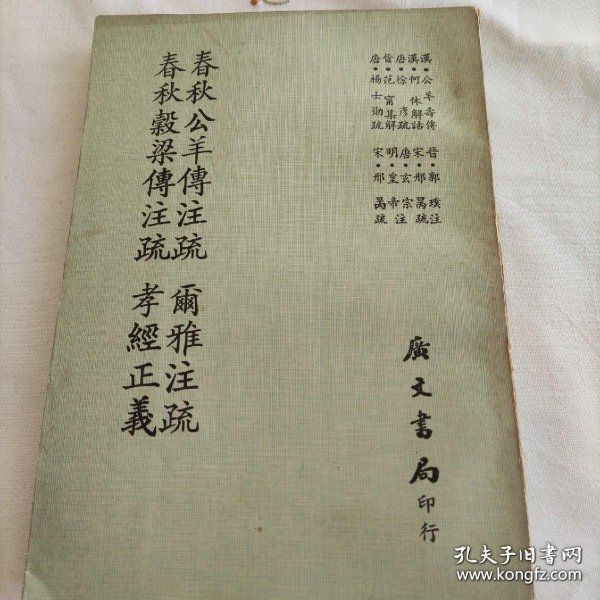 漢•公羊壽傳
漢•何休解詁
唐•徐彥疏
晉•范甯集解
唐•楊士勛疏
晉•郭璞注
宋•邢昺疏
唐•玄宗注
明皇帝
宋•邢昺疏
春秋公羊傳注疏
春秋穀梁傳注疏
爾雅注疏
孝經正義
廣文書局印行
孔夫子旧书网
www.kongfz.com